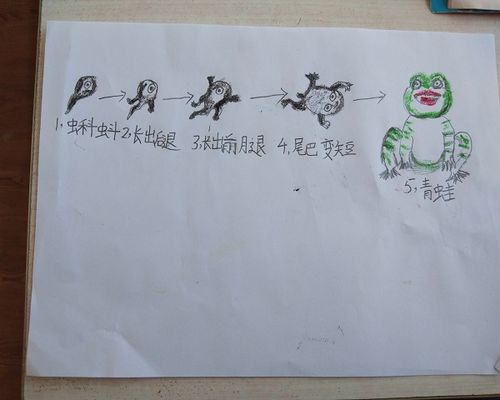 1,蝌蚪 2,长出后腿 3,长出前腿 4,尾巴变短
5,青蛙